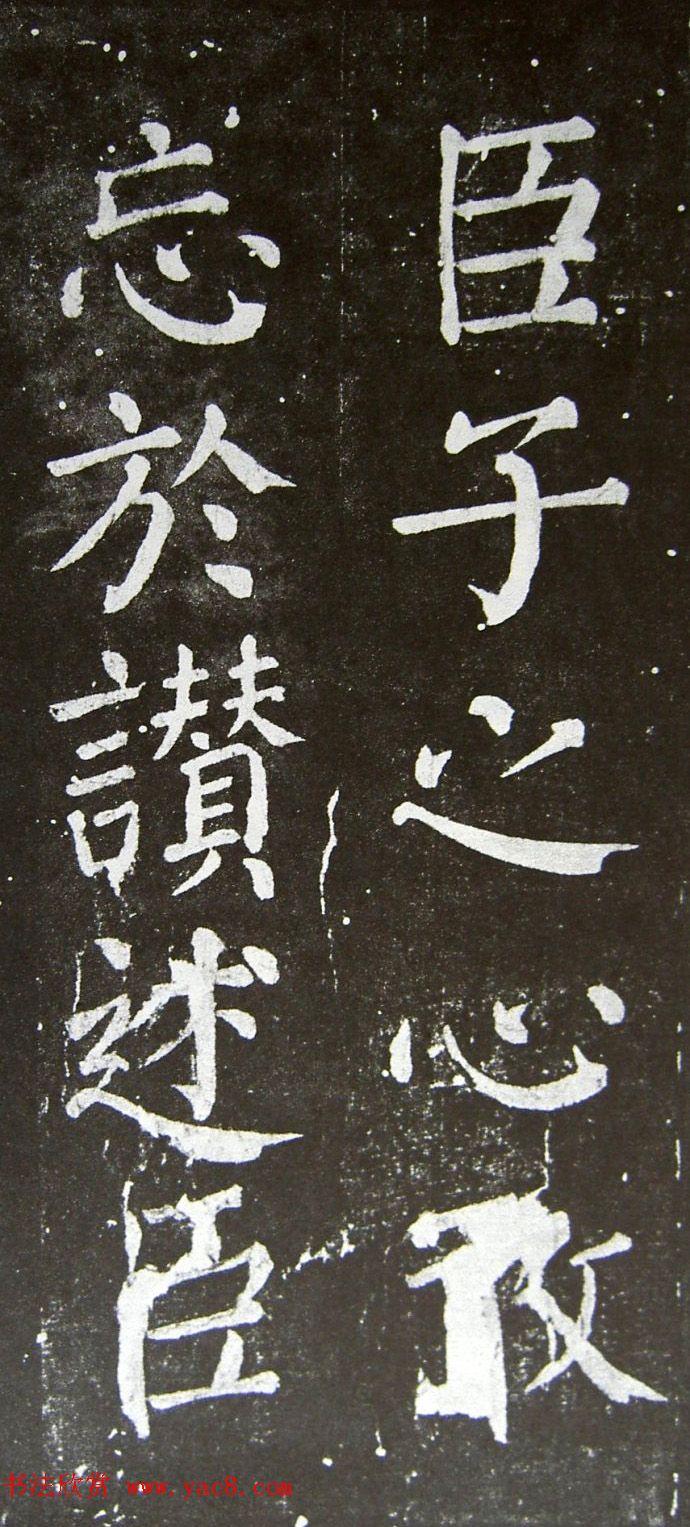 臣子之心敢
忘於讃述臣
书法欣赏 www.yac8.com